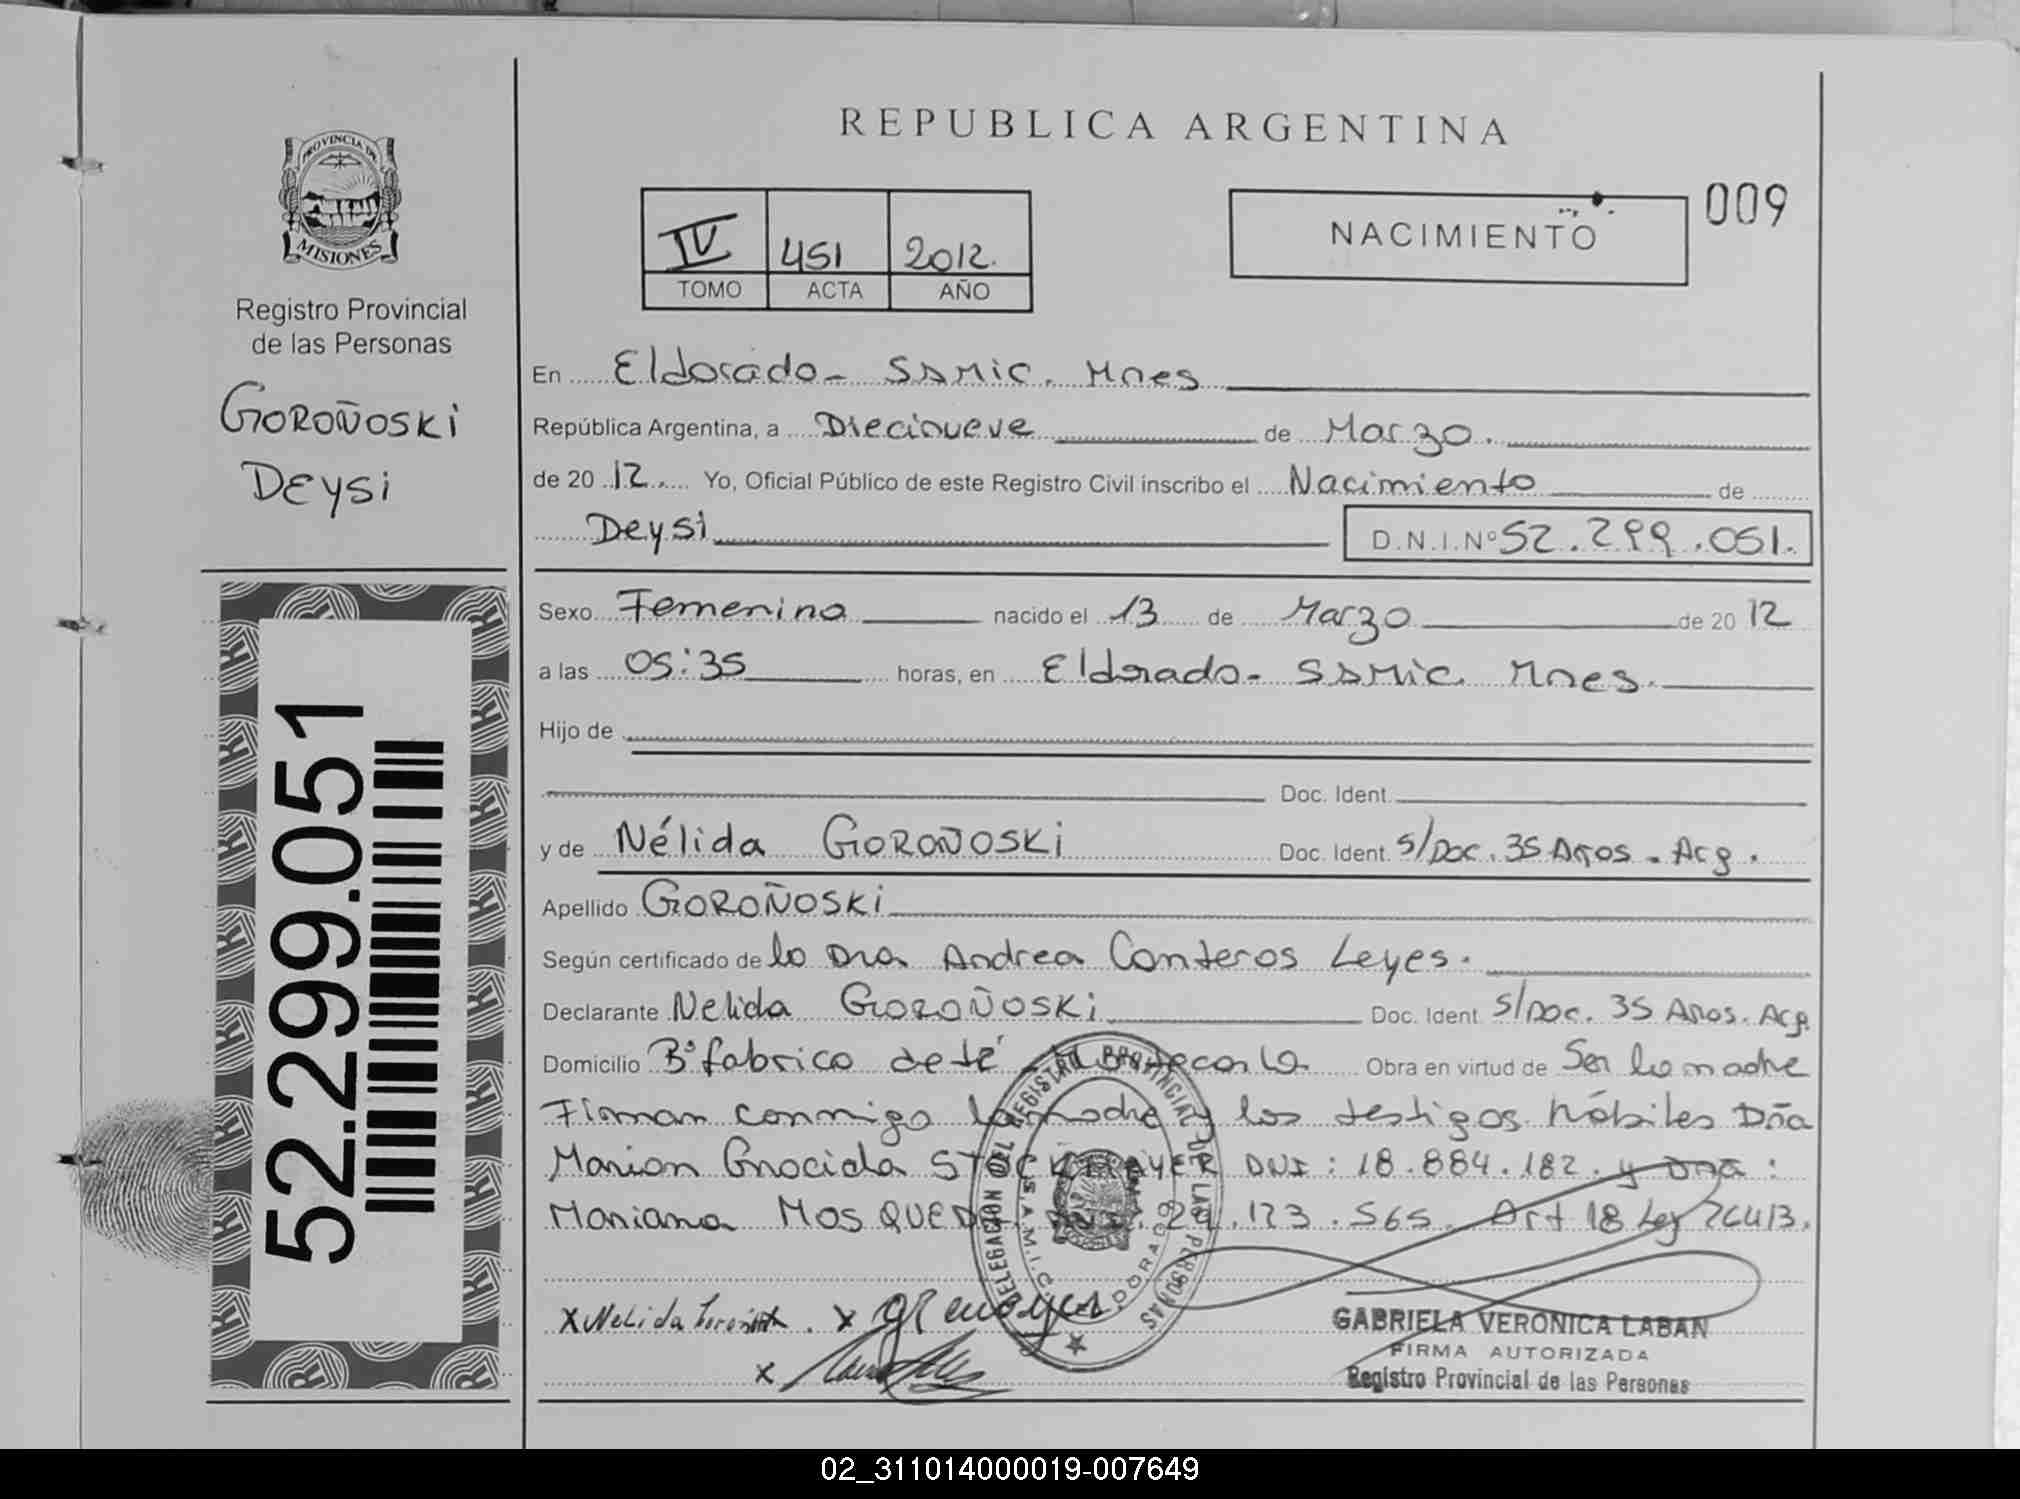 REPUBLICA ARGENTINA
PROVINCIA DE
MISIONES
Registro Provincial
de las Personas
GOROÑOSKI
DEYSI
IV 451 2012.
TOMO ACTA AÑO
NACIMIENTO
009
En Eldorado - SAMIC. Mnes
República Argentina, a Diecinueve de Marzo.
de 20 12. Yo, Oficial Público de este Registro Civil inscribo el Nacimiento de
Deysi D.N.I.Nº 52.299.051.
Sexo Femenino nacido el 13 de Marzo de 20 12
a las 05:35 horas, en Eldorado - SAMIC. Mnes.
Hijo de
Doc. Ident.
y de Nélida GOROÑOSKI Doc. Ident. S/Doc. 35 Años - Arg.
Apellido GOROÑOSKI
Según certificado de la Dra Andrea Conteros Leyes.
Declarante Nelida GOROÑOSKI Doc. Ident. S/Doc. 35 Años. Arg.
Domicilio Bº fabrica de té - Obra en virtud de Ser la madre
Firman conmigo la madre y los testigos hábiles Dña
Marian STOCKMAYER DNI: 18.884.182. y Dña:
Mariana MOSQUEDA 29.123.565. Art 18 Ley 26413.
x Nelida x
x
DELEGACIÓN DEL REGISTRO PROVINCIAL DE LAS PERSONAS
S.A.M.I.C. ELDORADO
GABRIELA VERONICA LABAN
FIRMA AUTORIZADA
Registro Provincial de las Personas
52.299.051
02_311014000019-007649